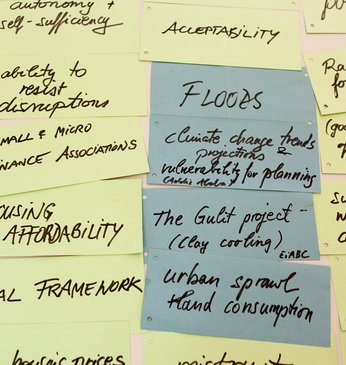 autonomy +
self-sufficiency
ability to
resist
disruptions
SMALL & MICRO
FINANCE ASSOCIATIONS
AFFORDABILITY
FRAMEWORK
housing prices
ACCEPTABILITY
FLOODS
climate change trends
projections &
vulnerability for planning
(Addis Ababa)
The Gulit project -
(clay cooling)
EiABC
urban sprawl
+land consumption